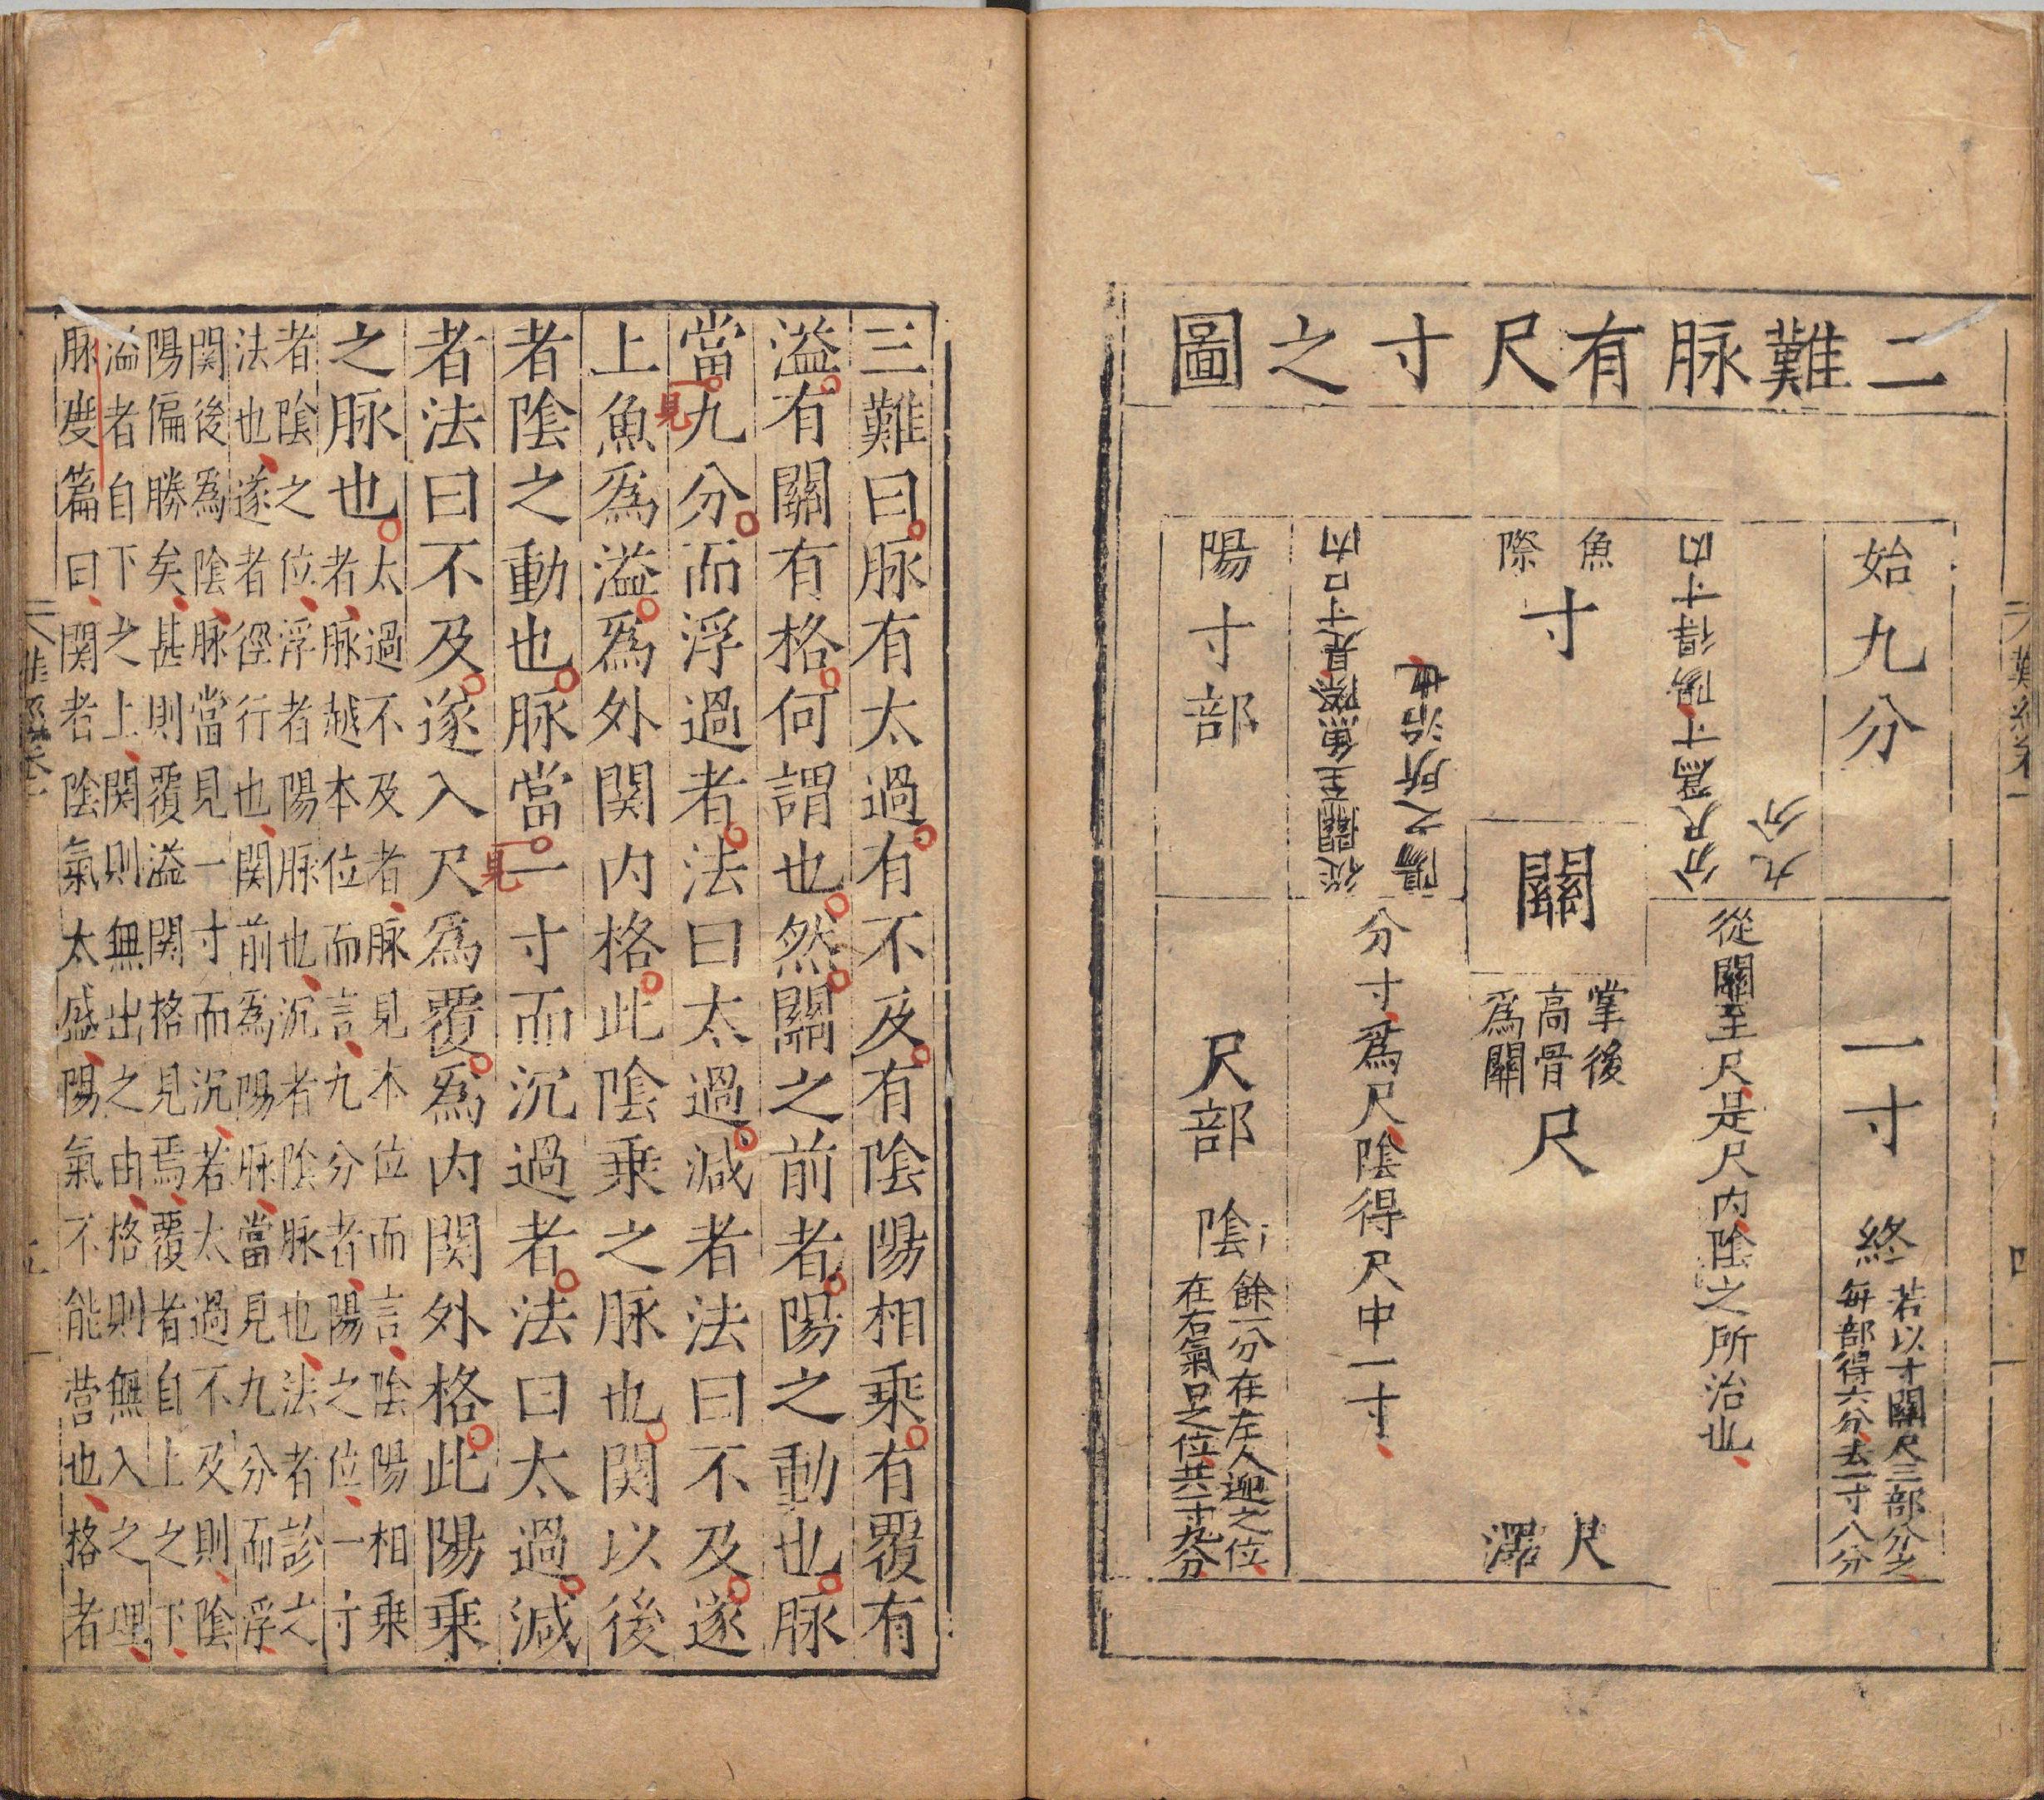 二難脉有尺寸之圖
始九分
一寸終
若以寸關尺三部分之
每部得六分去一寸八分
九分
分尺爲寸陽得寸内
從關至尺是尺内陰之所治也
魚際
寸
關
掌後
高骨
爲關
尺
尺澤
陽之所治也
從關至魚際是寸口内
分寸爲尺陰得尺中一寸
陽寸部
尺部陰
餘一分在左人迎之位
在右氣口之位共一寸九分
三難曰脉有太過有不及有陰陽相乗有覆有
溢有關有格何謂也然關之前者陽之動也脉
當見九分而浮過者法曰太過減者法曰不及遂
上魚爲溢爲外関内格此陰乗之脉也関以後
者陰之動也脉當見一寸而沉過者法曰太過減
者法曰不及遂入尺爲覆爲内関外格此陽乗
之脉也
太過不及者脉見本位而言陰陽相乗
者脉越本位而言九分者陽之位一寸
者陰之位浮者陽脉也沉者陰脉也法者診之
法也遂者徑行也関前為陽脉當見九分而浮
関後為陰脉當見一寸而沉若太過不及則陰
陽偏勝矣甚則覆溢関格見焉覆者自上之下
溢者自下之上関則無出之由格則無入之理
脉度篇曰関者陰氣太盛陽氣不能营也格者